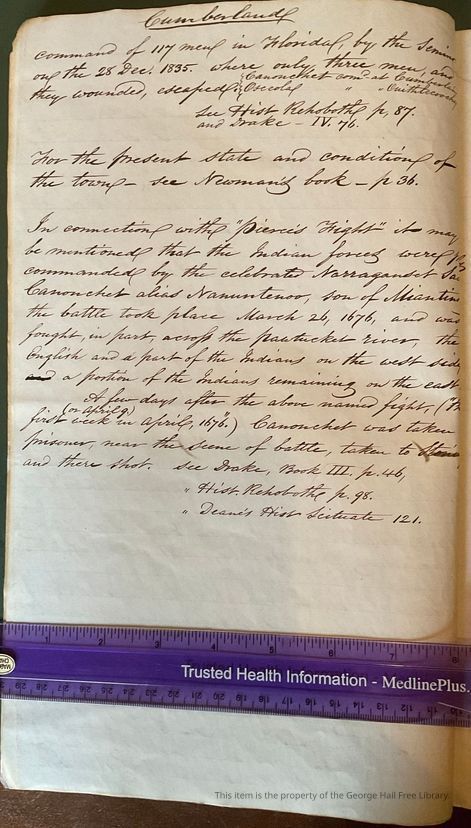 Cumberland
command of 117 men in Florida by the Semino
on the 28 Dec. 1835. where only three men, and
they wounded, escaped.
Canonchet com'd at Cumberla
Osceola " "
See Hist. Rehoboth p, 87.
and Drake - IV. 76.
For the present state and condition of
the town - see Newman's book - p 36.
In connection with "Pierce's Fight" it may
be mentioned that the Indian forces were
commanded by the celebrated Narraganset Sa
Canonchet alias Nanuntenoo, son of Miantin
the battle took place March 26, 1676, and was
fought, in part, across the pawtucket river, the
English and a part of the Indians on the west side
and a portion of the Indians remaining on the east
A few days after the above named fight, ("th
(on April 9)
first week in April, 1676.) Canonchet was taken
prisoner, near the scene of battle, taken to
and there shot. see Drake, Book III, p. 46,
" Hist. Rehoboth p. 98.
" Deane's Hist Scituate 121.
1 2 3 4 5 6 7 8
Trusted Health Information - MedlinePlus.
This item is the property of the George Hail Free Library.